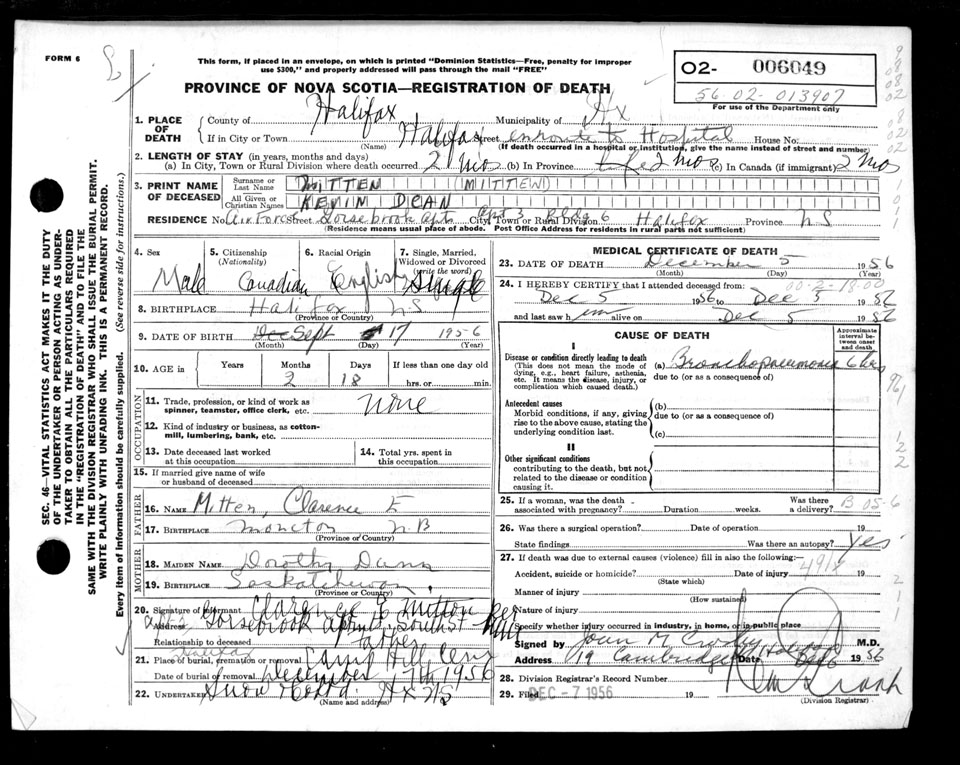 FORM 6
This form, if placed in an envelope, on which is printed "Dominion Statistics—Free, penalty for improper
use $300," and properly addressed will pass through the mail "FREE"
O2- 006049
56-02-013907
For use of the Department only
PROVINCE OF NOVA SCOTIA—REGISTRATION OF DEATH
1. PLACE OF DEATH
County of Halifax Municipality of Hx
If in City or Town Halifax Street enroute to Hospital House No.
(Name) (If death occurred in a hospital or institution, give the name instead of street and number)
2. LENGTH OF STAY (in years, months and days)
(a) In City, Town or Rural Division where death occurred 2 mos (b) In Province 2 mos (c) In Canada (if immigrant) 2 mo
3. PRINT NAME OF DECEASED
Surname or Last Name MITTEN (MITTEN)
All Given or Christian Names KEVIN DEAN
RESIDENCE No. Air Force Street Gorsebrook apt Apt 3 City, Town or Rural Division Bldg 6 Halifax Province NS
(Residence means usual place of abode. Post Office Address for residents in rural parts not sufficient)
4. Sex Male
5. Citizenship (Nationality) Canadian
6. Racial Origin English
7. Single, Married, Widowed or Divorced (write the word) Single
8. BIRTHPLACE Halifax NS
(Province or Country)
9. DATE OF BIRTH Dec Sept 17 1956
(Month) (Day) (Year)
10. AGE in Years Months 2 Days 18 If less than one day old hrs. or min.
OCCUPATION
11. Trade, profession, or kind of work as spinner, teamster, office clerk, etc. none
12. Kind of industry or business, as cotton-mill, lumbering, bank, etc.
13. Date deceased last worked at this occupation
14. Total yrs. spent in this occupation
15. If married give name of wife or husband of deceased
FATHER
16. NAME Mitten, Clarence E
17. BIRTHPLACE Moncton N.B
(Province or Country)
MOTHER
18. MAIDEN NAME Dorothy Dann
19. BIRTHPLACE Saskatchewan
(Province or Country)
20. Signature of informant Clarence E Mitton
Address Gorsebrook
Relationship to deceased father
Halifax
21. Place of burial, cremation or removal Camp Hill Cem
Date of burial or removal December 7th 1956
22. Undertaker Snow & Co Ltd. Hx NS
(Name and address)
MEDICAL CERTIFICATE OF DEATH
23. DATE OF DEATH December 5 1956
(Month) (Day) (Year)
24. I HEREBY CERTIFY that I attended deceased from:
Dec 5 1956 to Dec 5 1956
and last saw him alive on Dec 5 1956
CAUSE OF DEATH
Approximate interval between onset and death
I
Disease or condition directly leading to death
(This does not mean the mode of dying, e.g., heart failure, asthenia, etc. It means the disease, injury, or complication which caused death.)
(a) Bronchopneumonia 6 hrs
due to (or as a consequence of)
Antecedent causes
Morbid conditions, if any, giving rise to the above cause, stating the underlying condition last.
(b)
due to (or as a consequence of)
(c)
II
Other significant conditions
contributing to the death, but not related to the disease or condition causing it.
25. If a woman, was the death associated with pregnancy? Duration weeks. Was there a delivery? B 05-6
26. Was there a surgical operation? Date of operation 19
State findings Was there an autopsy? Yes
27. If death was due to external causes (violence) fill in also the following:—
Accident, suicide or homicide? Date of injury 491x 19
(State which)
Manner of injury
(How sustained)
Nature of injury
Specify whether injury occurred in industry, in home, or in public place
Signed by Joan M Crosby M.D.
Address 19 Cambridge Date Dec 6 1956
28. Division Registrar's Record Number
29. Filed DEC - 7 1956 19
(Division Registrar)
SEC. 46—VITAL STATISTICS ACT MAKES IT THE DUTY
OF THE UNDERTAKER OR PERSON ACTING AS UNDER-
TAKER TO OBTAIN ALL THE PARTICULARS REQUIRED
IN THE "REGISTRATION OF DEATH" AND TO FILE THE
SAME WITH THE DIVISION REGISTRAR WHO SHALL ISSUE THE BURIAL PERMIT.
WRITE PLAINLY WITH UNFADING INK. THIS IS A PERMANENT RECORD.
Every item of information should be carefully supplied. (See reverse side for instructions.)